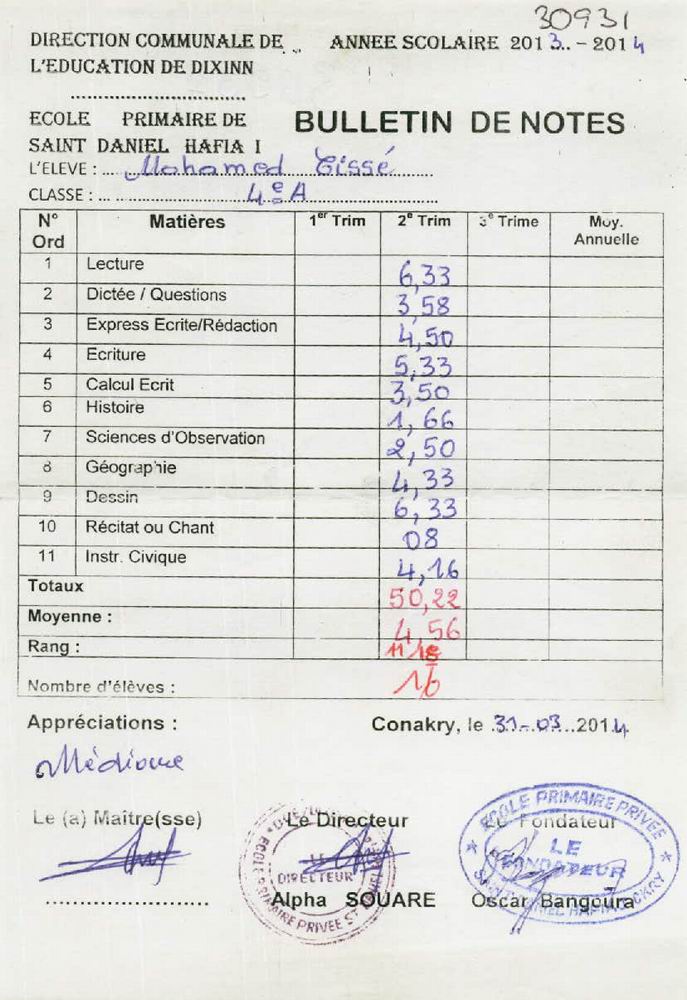 30931
DIRECTION COMMUNALE DE ANNEE SCOLAIRE 2013..-2014
L'EDUCATION DE DIXINN
ECOLE PRIMAIRE DE BULLETIN DE NOTES
SAINT DANIEL HAFIA I
L'ELEVE : Mohamed Cissé
CLASSE : 4e A
N° Ord Matières 1er Trim 2e Trim 3e Trime Moy. Annuelle
1 Lecture 6,33
2 Dictée / Questions 3,58
3 Express Ecrite/Rédaction 4,50
4 Ecriture 5,33
5 Calcul Ecrit 3,50
6 Histoire 1,66
7 Sciences d'Observation 2,50
8 Géographie 4,33
9 Dessin 6,33
10 Récitat ou Chant 08
11 Instr. Civique 4,16
Totaux 50,22
Moyenne : 4,56
Rang : 11
Nombre d'élèves : 16
Appréciations : Conakry, le 31-03..2014
Médiocre
Le (a) Maître(sse) Le Directeur Fondateur
ECOLE PRIMAIRE PRIVEE
LE FONDATEUR
DIRECTEUR
ECOLE PRIMAIRE PRIVEE ST
Alpha SOUARE Oscar Bangoura